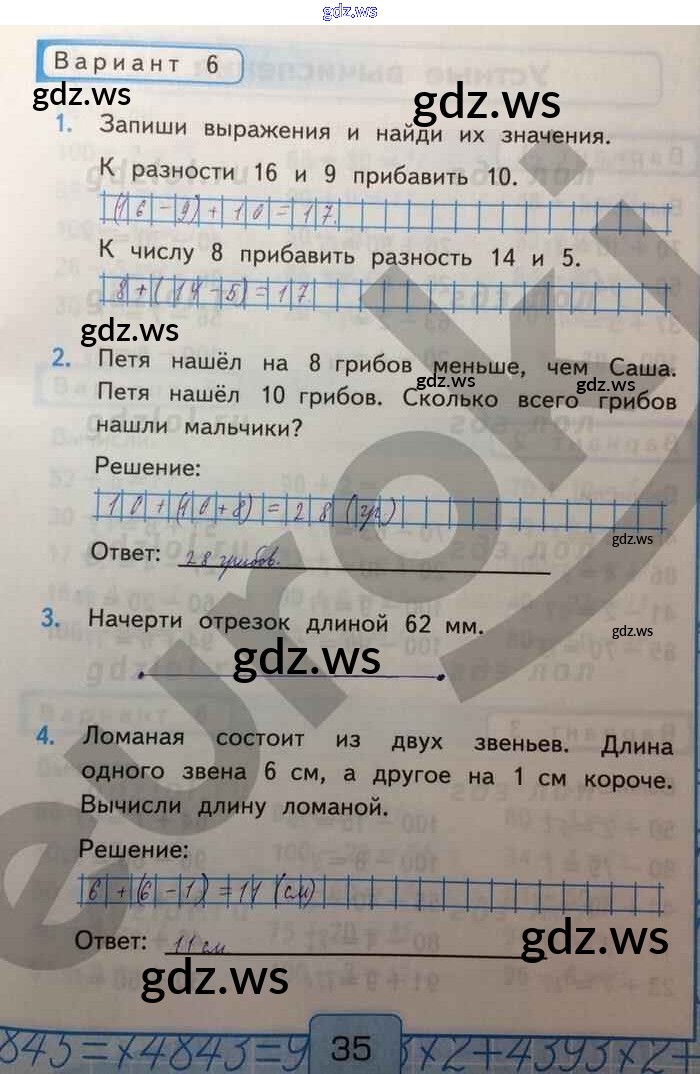 gdz.ws
Вариант 6
gdz.ws
gdz.ws
1. Запиши выражения и найди их значения.
К разности 16 и 9 прибавить 10.
(16-9)+10=17.
К числу 8 прибавить разность 14 и 5.
8+(14-5)=17.
gdz.ws
2. Петя нашёл на 8 грибов меньше, чем Саша.
gdz.ws
gdz.ws
Петя нашёл 10 грибов. Сколько всего грибов
нашли мальчики?
Решение:
10+(10+8)=28(гр)
gdz.ws
Ответ: 28 грибов.
3. Начерти отрезок длиной 62 мм.
gdz.ws
gdz.ws
4. Ломаная состоит из двух звеньев. Длина
одного звена 6 см, а другое на 1 см короче.
Вычисли длину ломаной.
Решение:
6+(6-1)=11(см)
Ответ: 11 см
gdz.ws
gdz.ws
euroki
35